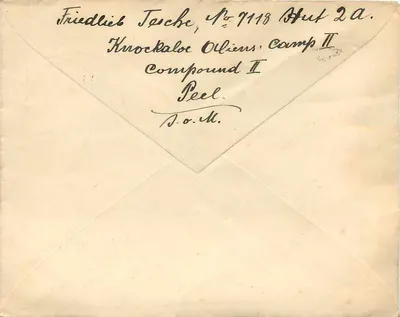 Friedlieb Tesche, No 7118 Hut 2A.
Knockaloe Aliens' Camp II
Compound II
Peel.
I.o.M.